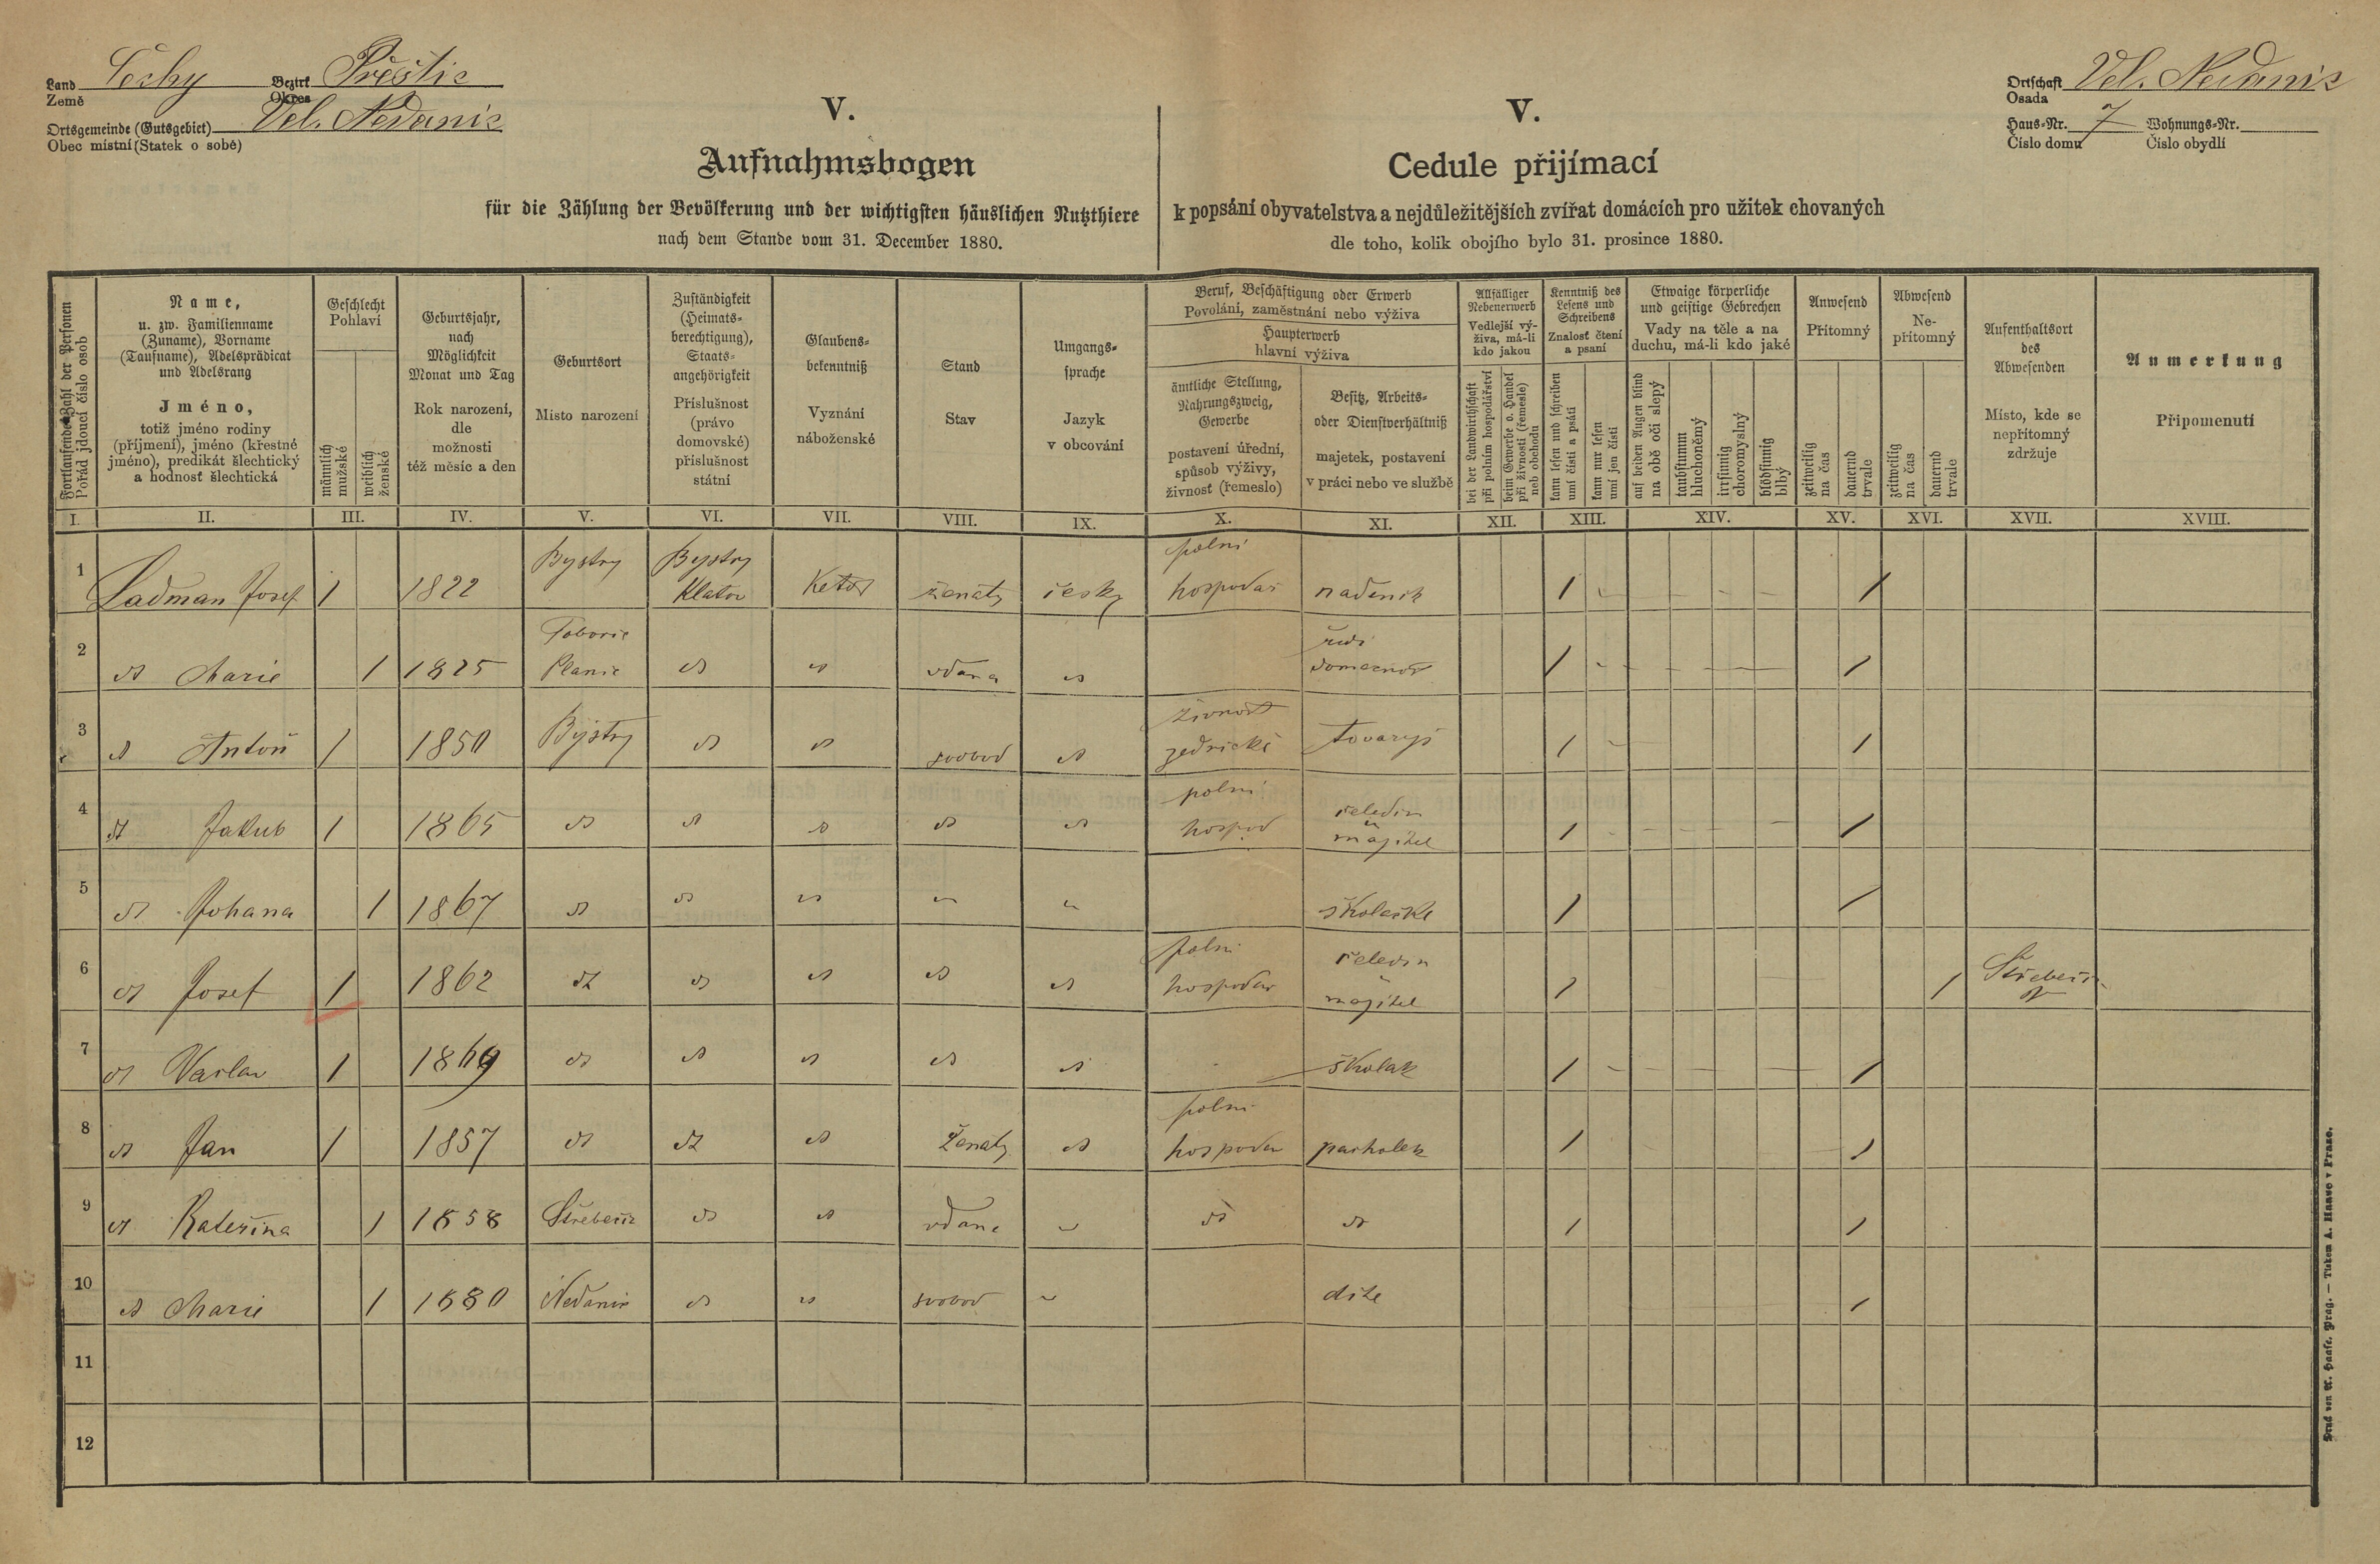 Land Čechy Bezirk Přeštic
Země Okres
Ortsgemeinde (Gutsgebiet) Vel. Nedanic
Obec místní (Statek o sobě)
Ortschaft Vel. Nedanic
Osada
Haus-Nr. 7 Wohnungs-Nr.
Číslo domu Číslo obydlí
V.
Aufnahmsbogen
für die Zählung der Bevölkerung und der wichtigsten häuslichen Nutzthiere
nach dem Stande vom 31. December 1880.
V.
Cedule přijímací
k popsání obyvatelstva a nejdůležitějších zvířat domácích pro užitek chovaných
dle toho, kolik obojího bylo 31. prosince 1880.
Fortlaufende Zahl der Personen
Pořád jdoucí číslo osob
Name,
u. zw. Familienname
(Zuname), Vorname
(Taufname), Adelsprädicat
und Adelsrang
Jméno,
totiž jméno rodiny
(příjmení), jméno (křestné
jméno), predikát šlechtický
a hodnosť šlechtická
Geschlecht
Pohlaví
männlich
mužské
weiblich
ženské
Geburtsjahr,
nach
Möglichkeit
Monat und Tag
Rok narození,
dle
možnosti
též měsíc a den
Geburtsort
Místo narození
Zuständigkeit
(Heimats-
berechtigung),
Staats-
angehörigkeit
Příslušnost
(právo
domovské)
příslušnost
státní
Glaubens-
bekenntniß
Vyznání
náboženské
Stand
Stav
Umgangs-
sprache
Jazyk
v obcování
Beruf, Beschäftigung oder Erwerb
Povolání, zaměstnání nebo výživa
Haupterwerb
hlavní výživa
ämtliche Stellung,
Nahrungszweig,
Gewerbe
postavení úřední,
spůsob výživy,
živnosť (řemeslo)
Besitz, Arbeits-
oder Dienstverhältniß
majetek, postavení
v práci nebo ve službě
Allfälliger
Nebenerwerb
Vedlejší vý-
živa, má-li
kdo jakou
bei der Landwirthschaft
při polním hospodářství
beim Gewerbe o. Handel
při živnosti (řemesle)
neb obchodu
Kenntniß des
Lesens und
Schreibens
Znalosť čtení
a psaní
kann lesen und schreiben
umí čísti a psáti
kann nur lesen
umí jen čísti
Etwaige körperliche
und geistige Gebrechen
Vady na těle a na
duchu, má-li kdo jaké
auf beiden Augen blind
na obě oči slepý
taubstumm
hluchoněmý
irrsinnig
choromyslný
blödsinnig
blbý
Anwesend
Přítomný
zeitweilig
na čas
dauernd
trvale
Abwesend
Ne-
přítomný
zeitweilig
na čas
dauernd
trvale
Aufenthaltsort
des
Abwesenden
Místo, kde se
nepřítomný
zdržuje
Anmerkung
Připomenutí
I. II. III. IV. V. VI. VII. VIII. IX. X. XI. XII. XIII. XIV. XV. XVI. XVII. XVIII.
Bystry Bystry polní
1 Ladman Josef 1 1822 Klatov Katol ženatý česky hospodař nadeník 1 1
řídí
2 dt Marie 1 1825 Planic dt dt vdana dt domacnost 1 1
živnost
3 dt Antoň 1 1850 Bystry dt dt svobod dt zednické tovaryš 1 1
polní čeledín
4 dt Jakub 1 1865 dt dt dt dt dt hospod majitel 1 1
5 dt Johana 1 1867 dt dt dt dt dt školačka 1 1
polní čeledín
6 dt Josef 1 1862 dt dt dt dt dt hospodar majitel 1 1
7 dt Vaclav 1 1869 dt dt dt dt dt školak 1 1
polní
8 dt Jan 1 1857 dt dt dt ženatý dt hospodar pacholek 1 1
9 dt Kateřina 1 1858 dt dt vdana dt dt dt 1 1
10 dt Marie 1 1880 Nedanic dt dt svobod dt díte 1
11
12
Druck von A. Haase, Prag. — Tiskem A. Haase v Praze.